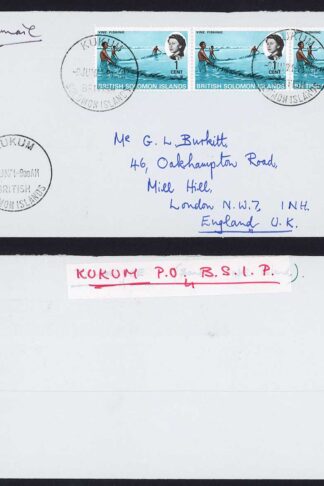 mail
KUKUM
BRITISH
SOLOMON ISLANDS
VINE FISHING
1 CENT
BRITISH SOLOMON ISLANDS
VINE FISHING
1 CENT
BRITISH SOLOMON ISLANDS
KUKUM
SOLOMON ISLANDS
KUKUM
9-00AM
BRITISH
SOLOMON ISLANDS
Mr G. L. Burkitt,
46, Oakhampton Road,
Mill Hill,
London N.W.7, 1NH.
England U.K.
KUKUM P.O. B.S.I.P.